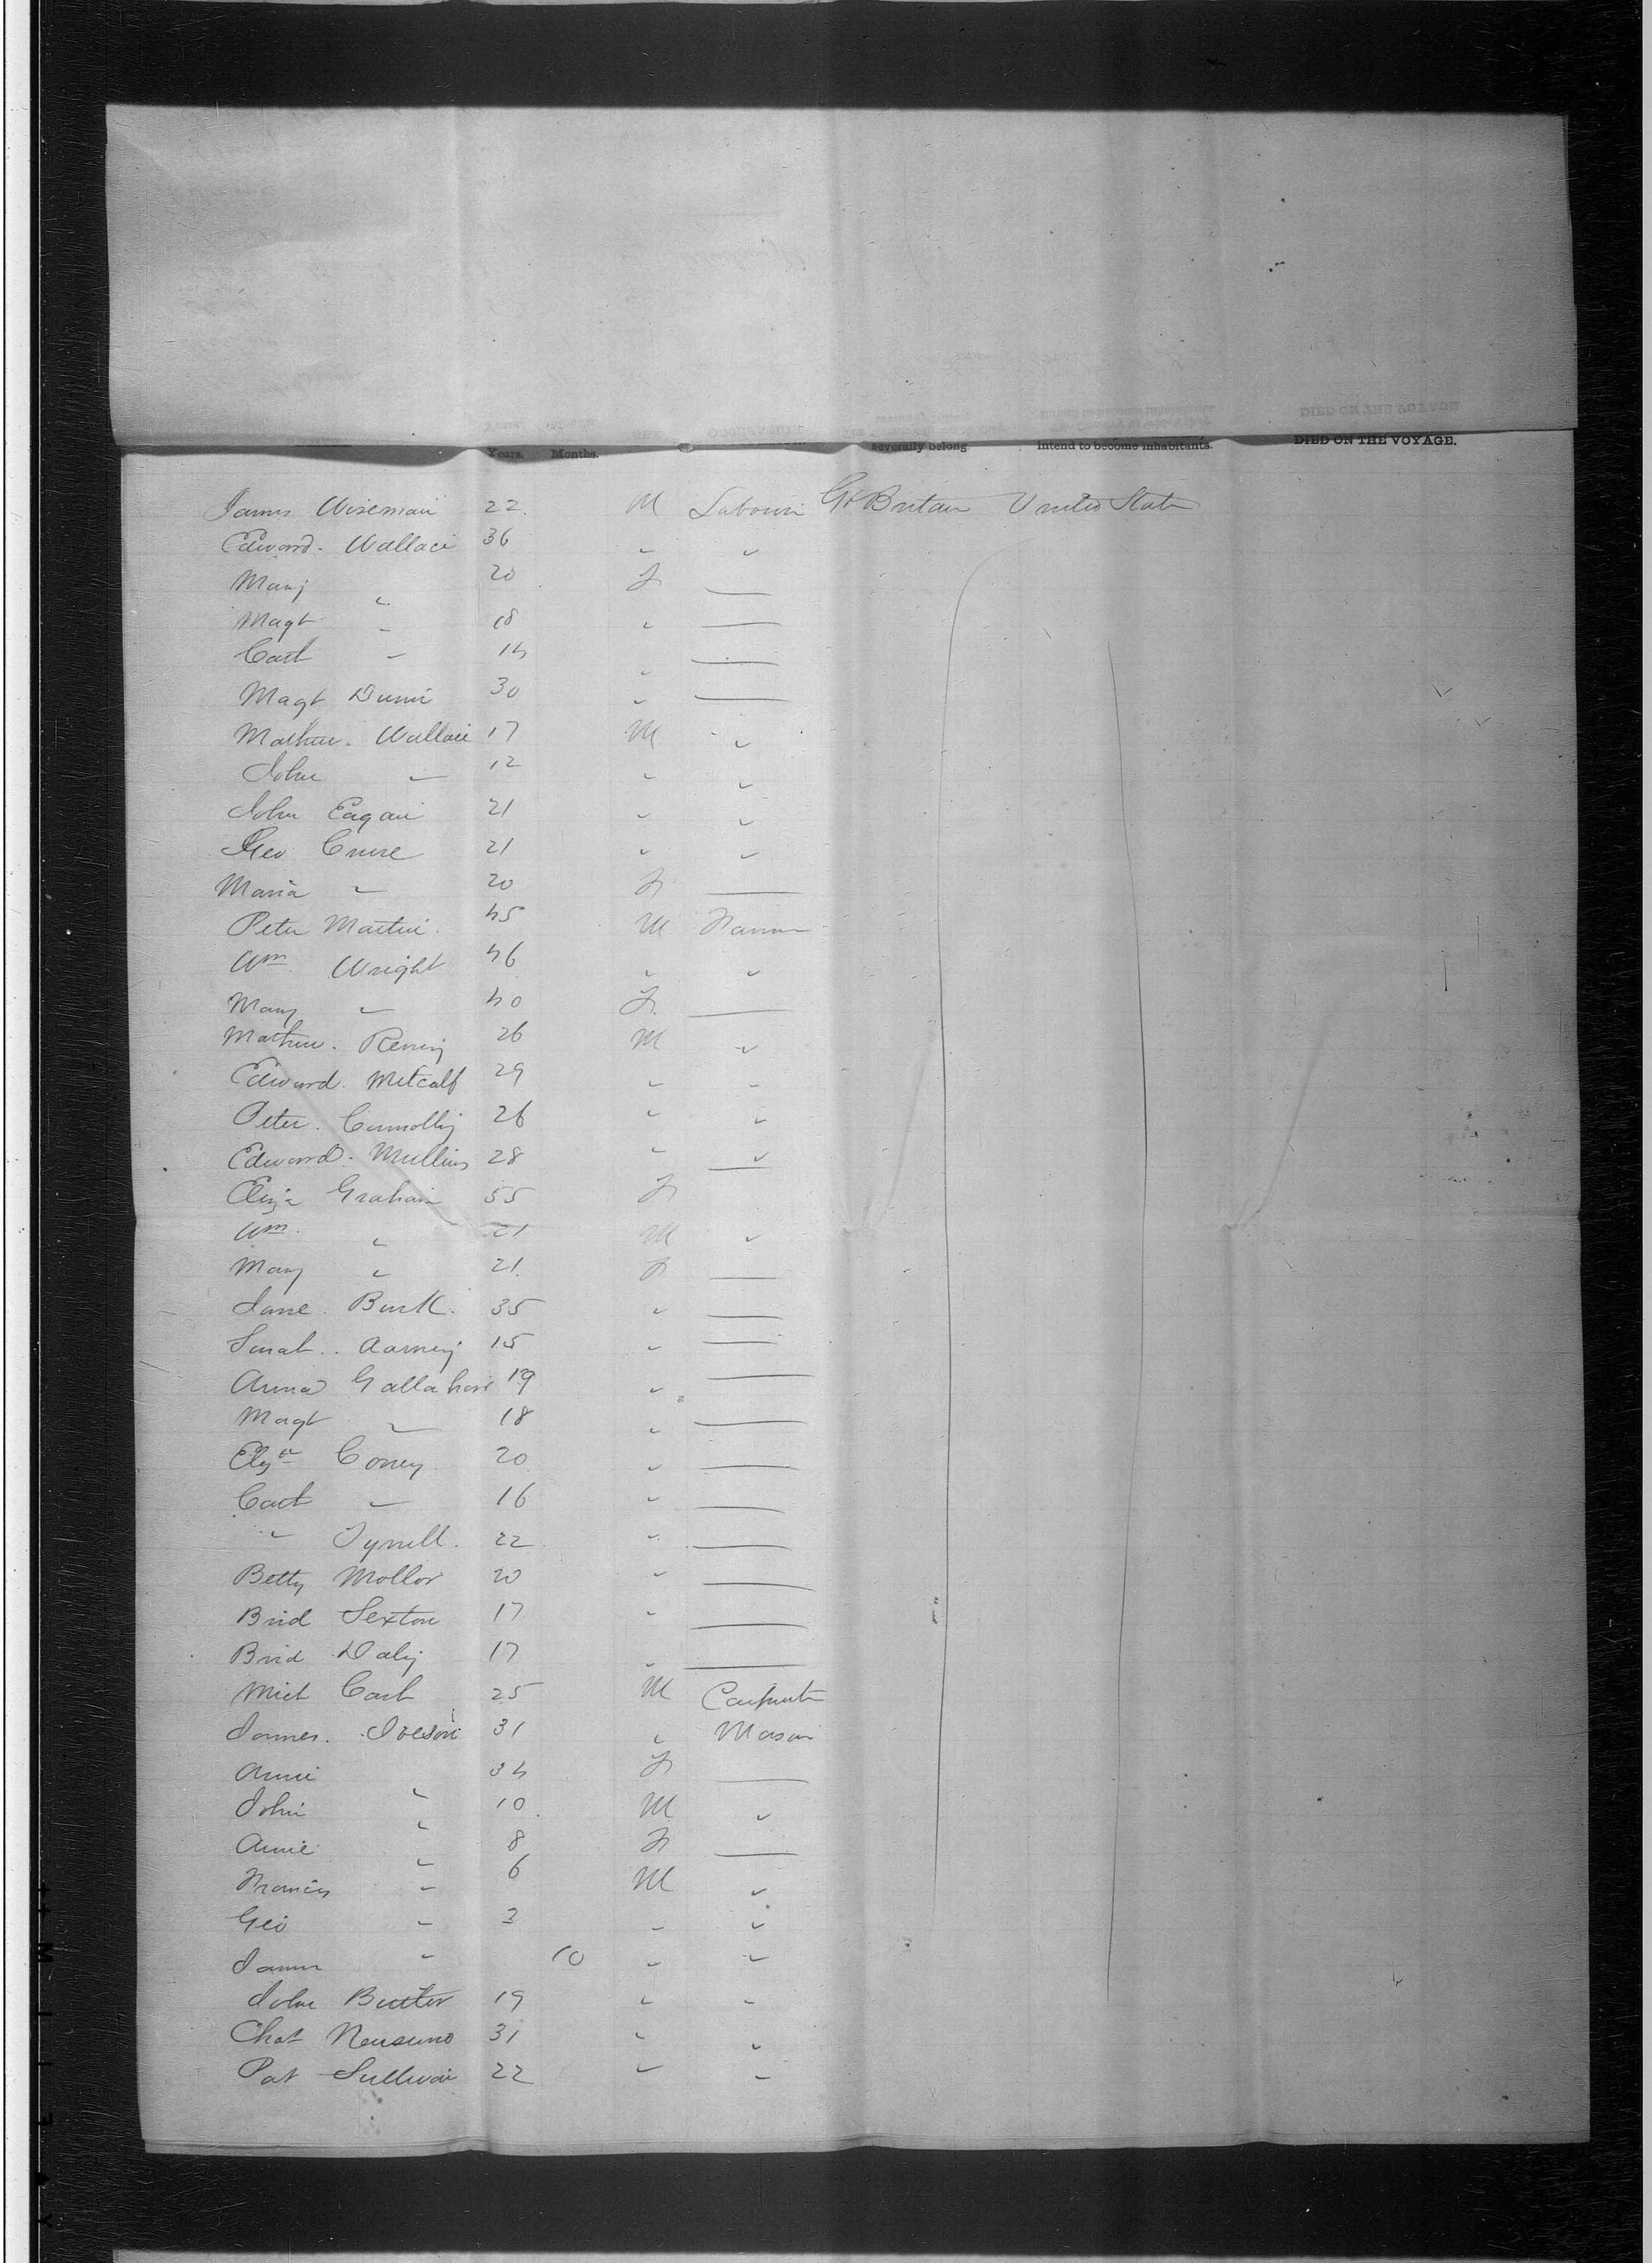 Years. Months. severally belong intend to become inhabitants. DIED ON THE VOYAGE.
James Wiseman 22 M Labourer Gt Britain United States
Edward Wallace 36 " "
Mary " 20 F —
Magt " 18 " —
Cath " 14 " —
Magt Dunn 30 " —
Mathew Wallace 17 M "
John " 12 " "
John Eagan 21 " "
Geo 21 " "
Maria " 20 F —
Peter Martin 45 M Farmer
Wm Wright 46 " "
Mary " 40 F —
Mathew 26 M "
Edward Metcalf 29 " "
Peter Connolly 26 " "
Edward Mullins 28 " "
Eliza Graham 55 F —
Wm " 21 M "
Mary " 21 F —
Jane Burk 35 " —
Sarah 15 " —
Anna Gallahan 19 " —
Magt " 18 " —
Elizth Coney 20 " —
Cath " 16 " —
" Tyrrell 22 " —
Betty Mollor 20 " —
Brid Sexton 17 " —
Brid Daly 17 " —
Mich 25 M Carpenter
James 31 " Mason
Annie " 34 F —
John " 10 M "
Annie " 8 F —
Francis " 6 M "
Geo " 3 " "
James " 10 " "
John Butler 19 " "
Chas 31 " "
Pat Sullivan 22 " "